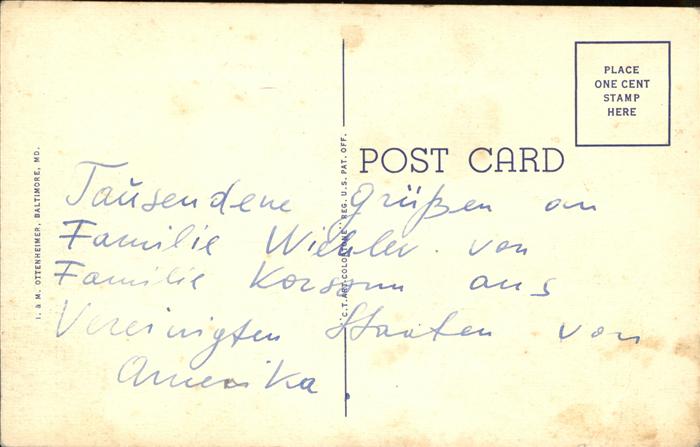 PLACE
ONE CENT
STAMP
HERE
POST CARD
I. & M. OTTENHEIMER, BALTIMORE, MD.
"C.T. ART-COLORTONE" REG. U.S. PAT. OFF.
Tausendene Grüßen an
Familie von
Familie aus
Vereinigten Staaten von
Amerika.